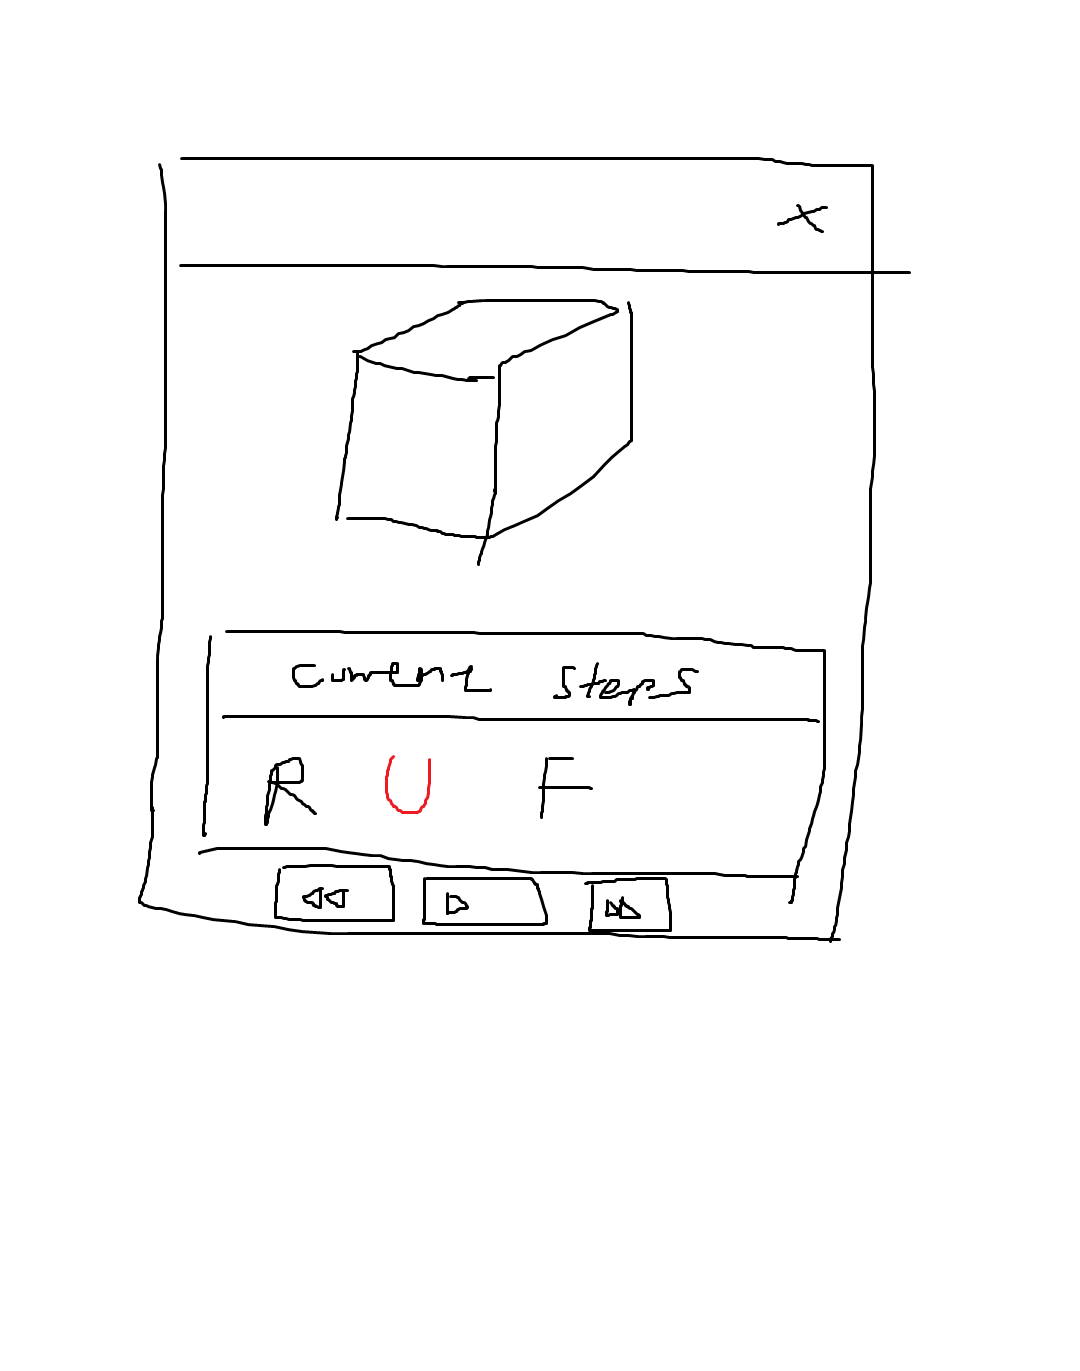 X
Current Steps
R U F